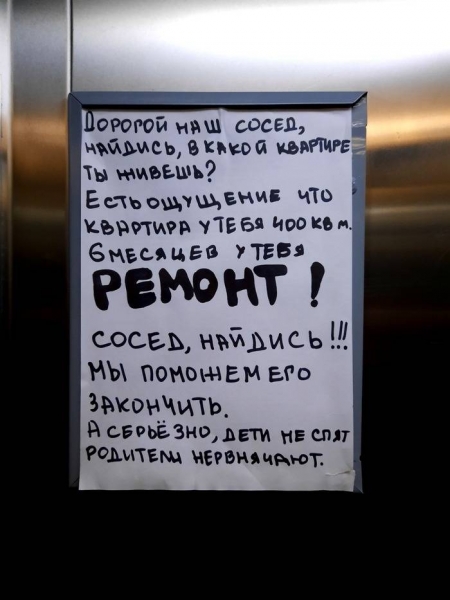 ДОРОГОЙ НАШ СОСЕД,
НАЙДИСЬ, В КАКОЙ КВАРТИРЕ
ТЫ ЖИВЕШЬ?
ЕСТЬ ОЩУЩЕНИЕ ЧТО
КВАРТИРА У ТЕБЯ 400 КВ М.
6 МЕСЯЦЕВ У ТЕБЯ
РЕМОНТ!
СОСЕД, НАЙДИСЬ!!!
МЫ ПОМОЖЕМ ЕГО
ЗАКОНЧИТЬ.
А СЕРЬЁЗНО, ДЕТИ НЕ СПЯТ
РОДИТЕЛИ НЕРВНЯЧАЮТ.